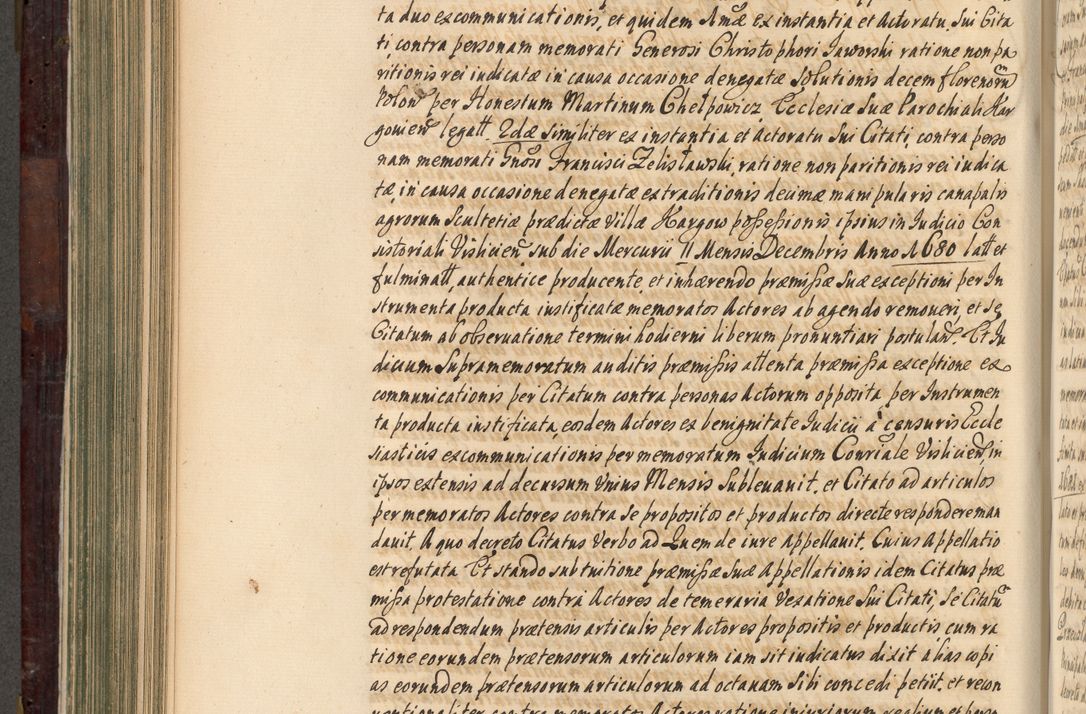 ta duo excommunicationis, et quidem Amæ ex instantia et Actoratu Sui Cita
ti, contra personam memorati Generosi Christophori Jaworski ratione non pa
ritionis rei iudicatæ in causa occasione denegatæ solutionis decem florenorũ
Polon, per Honestum Martinum Chełpowicz, Ecclesiæ Suæ Parochiali Har
govien legatt. 2dæ similiter ex instantia et Actoratu Sui Citati, contra perso
nam memorati Gnosi Francisci Zelisławski, ratione non paritionis rei iudica
tæ, in causa occasione denegatæ extraditionis decimæ manipularis canapalis
agrorum Scultetiæ prædictæ villæ Hargow possessionis ipsius in Iudicio Con
sistoriali Vislicien sub die Mercurii 11 Mensis Decembris Anno 1680 latt et
fulminatt, authentice producente, et inhærendo præmissæ Suæ exceptioni per In
strumenta producta iustificatæ memoratos Actores ab agendo removeri, et se
Citatum ab observatione termini hodierni liberum pronuntiari postulan. Et Iu
dicium Supramemoratum auditis præmissis attenta præmissa exceptione ex
communicationis per Citatum contra personas Actorum opposita per Instrumen
ta producta iustificata, eosdem Actores ex benignitate Iudicii à censuris Eccle
siasticis excommunicationis per memoratum Iudicium Conriale Vislicien in
ipsos extensis ad decursum Unius Mensis Sublevavit, et Citato ad articulos
per memoratos Actores contra Se propositos et productos directe respondere man
davit, A quo decreto Citatus Verbo ad Quem de iure Appellavit. Cuius Appellatio
est refutata Et stando sub tuitione præmissæ Suæ Appellationis idem Citatus præ
missa protestatione contra Actores de temeraria Vexatione Sui Citati, Se Citatũ
ad respondendum prætensis articulis per Actores propositis et productis, cum ra
tione eorundem prætensorum articulorum iam sit iudicatus dixit alias copi
as eorundem prætensorum articulorum ad octavam Sibi concedi petiit, et recon
ventionaliter contra memoratos Actores ratione iniuriarum realium et perso